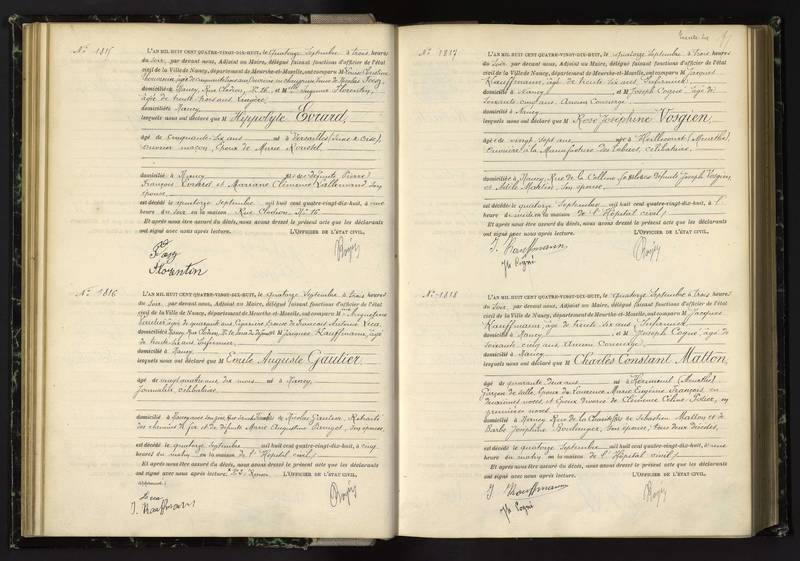 Nº 1815
L'AN MIL HUIT CENT QUATRE-VINGT-DIX-HUIT, le quatorze Septembre à trois heures
du Soir, par devant nous, Adjoint au Maire, délégué faisant fonctions d'officier de l'état
civil de la Ville de Nancy, département de Meurthe-et-Moselle, ont comparu M
domiciliée à Nancy, Rue Clodion, Nº 16 et M Florentin,
âgée de trente trois ans
domiciliée à Nancy
lesquels nous ont déclaré que M Hippolyte Evrard,
âgé de Cinquante-six ans né à Versailles (Seine & Oise),
ouvrier maçon, Epoux de Marie Roustel
domicilié à Nancy fils des défunts Pierre
François Evrard et Mariane Clémence Lallemand, Son
épouse
est décédé le quatorze Septembre mil huit cent quatre-vingt-dix-huit, à une
heure du Soir en la maison Rue Clodion, Nº 16
Et après nous être assuré du décès, nous avons dressé le présent acte que les déclarants
ont signé avec nous après lecture. L'OFFICIER DE L'ÉTAT CIVIL,
Florentin
Nº 1816
L'AN MIL HUIT CENT QUATRE-VINGT-DIX-HUIT, le quatorze Septembre à trois heures
du Soir, par devant nous, Adjoint au Maire, délégué faisant fonctions d'officier de l'état
civil de la Ville de Nancy, département de Meurthe-et-Moselle, ont comparu M Augustine
âgée de quarante ans, Epicière, Epouse de François Antoine
domiciliée à Nancy, et M Jacques Kauffmann, âgé
de trente-six ans Infirmier,
domicilié à Nancy
lesquels nous ont déclaré que M Emile Auguste Gautier
âgé de vingt quatre ans dix mois né à Nancy,
Journalier, célibataire
domicilié à Nancy fils de Nicolas Retraité
des chemins de fer et de défunte Marie Augustine Son épouse,
est décédé le quatorze Septembre mil huit cent quatre-vingt-dix-huit, à cinq
heures du matin en la maison de l'Hôpital civil,
Et après nous être assuré du décès, nous avons dressé le présent acte que les déclarants
ont signé avec nous après lecture. L'OFFICIER DE L'ÉTAT CIVIL,
J. Kauffmann
Nº 1817
L'AN MIL HUIT CENT QUATRE-VINGT-DIX-HUIT, le quatorze Septembre à trois heures
du Soir, par devant nous, Adjoint au Maire, délégué faisant fonctions d'officier de l'état
civil de la Ville de Nancy, département de Meurthe-et-Moselle, ont comparu M Jacques
Kauffmann, âgé de trente six ans Infirmier,
domicilié à Nancy et M Joseph Cogné, âgé de
soixante cinq ans, Ancien Concierge,
domicilié à Nancy
lesquels nous ont déclaré que M Rose Joséphine Vosgien,
âgée de vingt sept ans née à (Meurthe),
Ouvrière à la Manufacture des tabacs, célibataire,
domiciliée à Nancy, Rue de la Colline, fille de défunt Joseph Vosgien
et Adèle Martin, Son épouse
est décédée le quatorze Septembre mil huit cent quatre-vingt-dix-huit, à l'
heure de midi en la maison de l'Hôpital civil,
Et après nous être assuré du décès, nous avons dressé le présent acte que les déclarants
ont signé avec nous après lecture. L'OFFICIER DE L'ÉTAT CIVIL,
J. Kauffmann
Jh Cogné
Nº 1818
L'AN MIL HUIT CENT QUATRE-VINGT-DIX-HUIT, le quatorze Septembre à trois heures
du Soir, par devant nous, Adjoint au Maire, délégué faisant fonctions d'officier de l'état
civil de la Ville de Nancy, département de Meurthe-et-Moselle, ont comparu M Jacques
Kauffmann, âgé de trente six ans, Infirmier
domicilié à Nancy et M Joseph Cogné, âgé de
soixante cinq ans, Ancien Concierge,
domicilié à Nancy
lesquels nous ont déclaré que M Charles Constant Matton
âgé de quarante deux ans né à (Meurthe)
Garçon de salle, Epoux de Laurence Marie Eugénie François en
deuxièmes noces et Epoux divorcé de Clémence Céline en
premières noces
domicilié à Nancy, Rue de la Charité, fils de Sébastien Matton et de
Barbe Joséphine Boulanger, Son épouse, tous deux décédés,
est décédé le quatorze Septembre mil huit cent quatre-vingt-dix-huit, à une
heure du matin en la maison de l'Hôpital civil,
Et après nous être assuré du décès, nous avons dressé le présent acte que les déclarants
ont signé avec nous après lecture. L'OFFICIER DE L'ÉTAT CIVIL,
J. Kauffmann
Jh Cogné